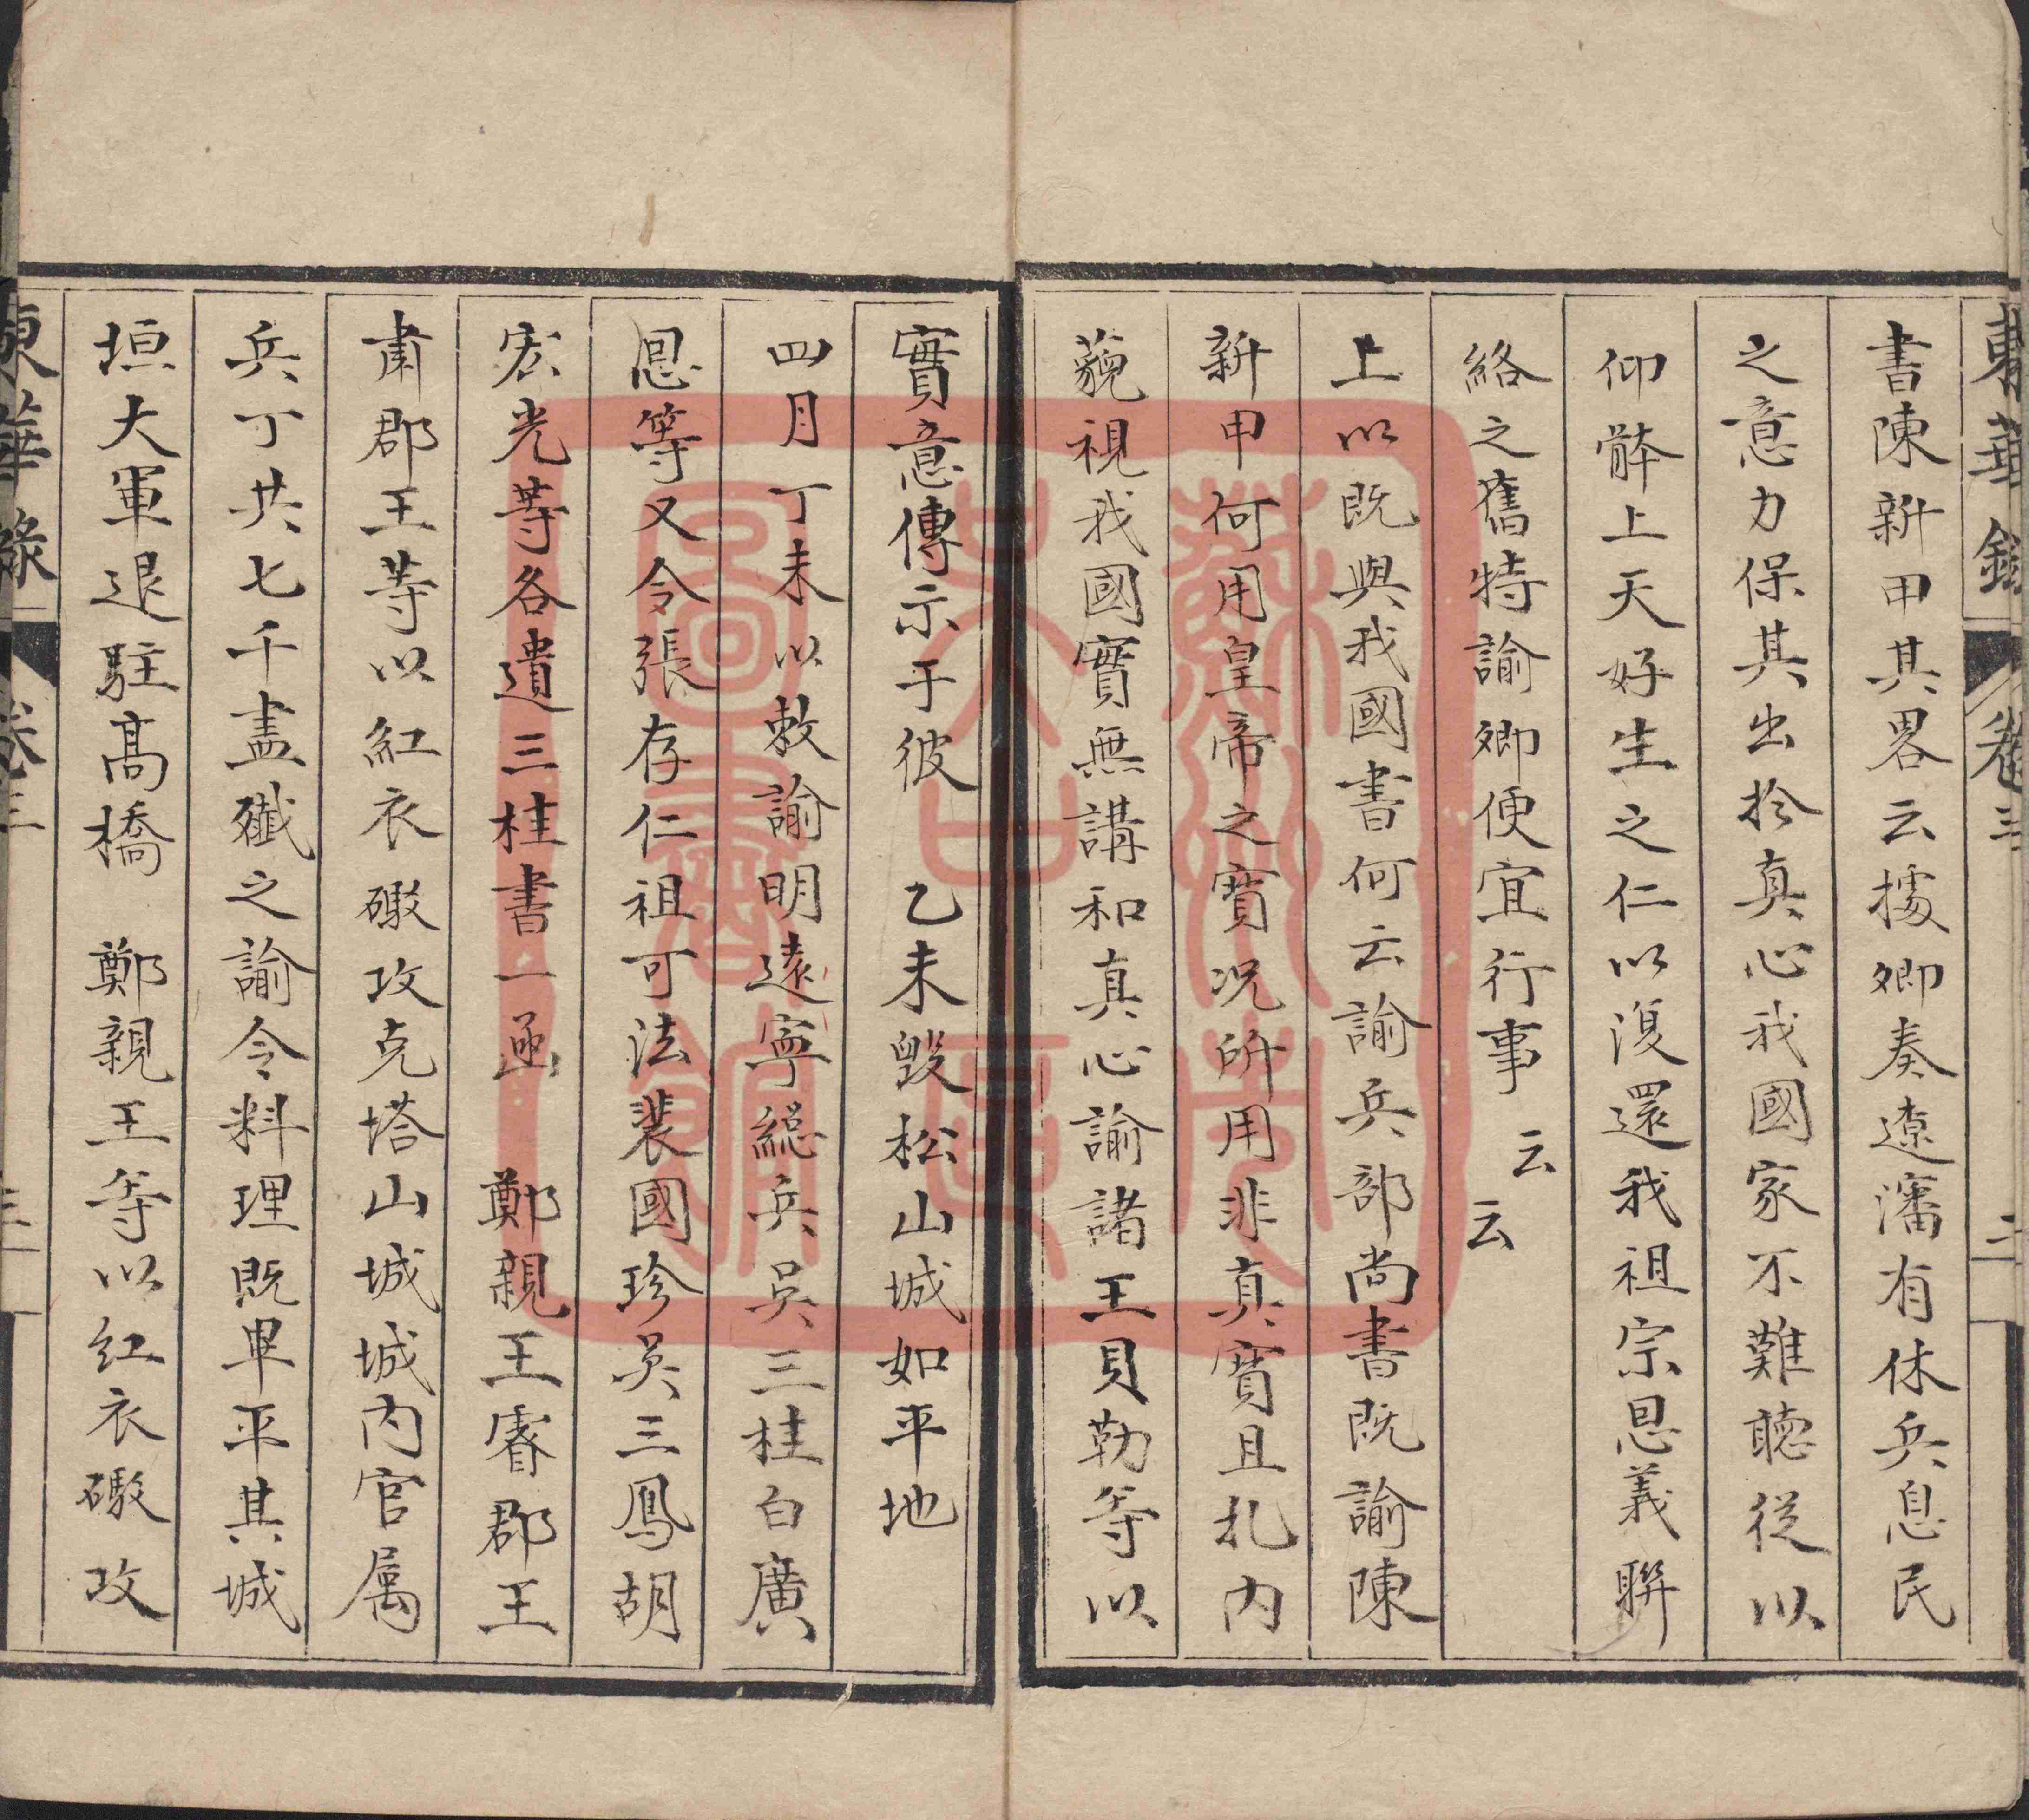 東華錄 卷三 二
書陳新甲其畧云據卿奏遼瀋有休兵息民
之意力保其出於真心我國家不難聽從以
仰體上天好生之仁以復還我祖宗恩義聯
絡之舊特諭卿便宜行事云云
上以既與我國書何云諭兵部尚書既諭陳
新甲何用皇帝之寶況所用非真寶且札内
藐視我國實無講和真心諭諸王貝勒等以
實意傳示于彼 乙未毀松山城如平地
四月丁未以敕諭明遠寧總兵吳三桂白廣
恩等又令張存仁祖可法裴國珍吳三鳳胡
宏光等各遺三桂書一函 鄭親王睿郡王
肅郡王等以紅衣礮攻克塔山城城内官属
兵丁共七千盡殲之諭令料理既畢平其城
垣大軍退駐高橋 鄭親王等以红衣礮攻
東華錄 卷三 三